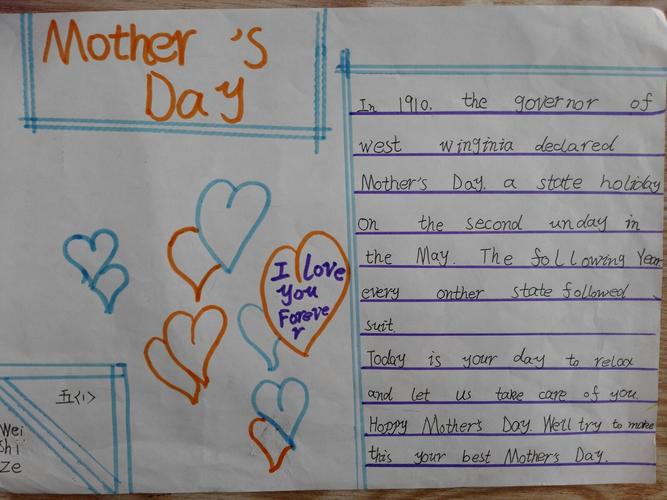 Mother's
Day
In 1910. the governor of
west winginia declared
Mother's Day. a state holiday
on the second unday in
the May. The following Year
every onther state followed
suit.
Today is your day to relax
and let us take care of you.
Happy Mother's Day. We'll try to make
this your best Mother's Day.
I love
You
Foreve
r
五<1>
Wei
Shi
Ze